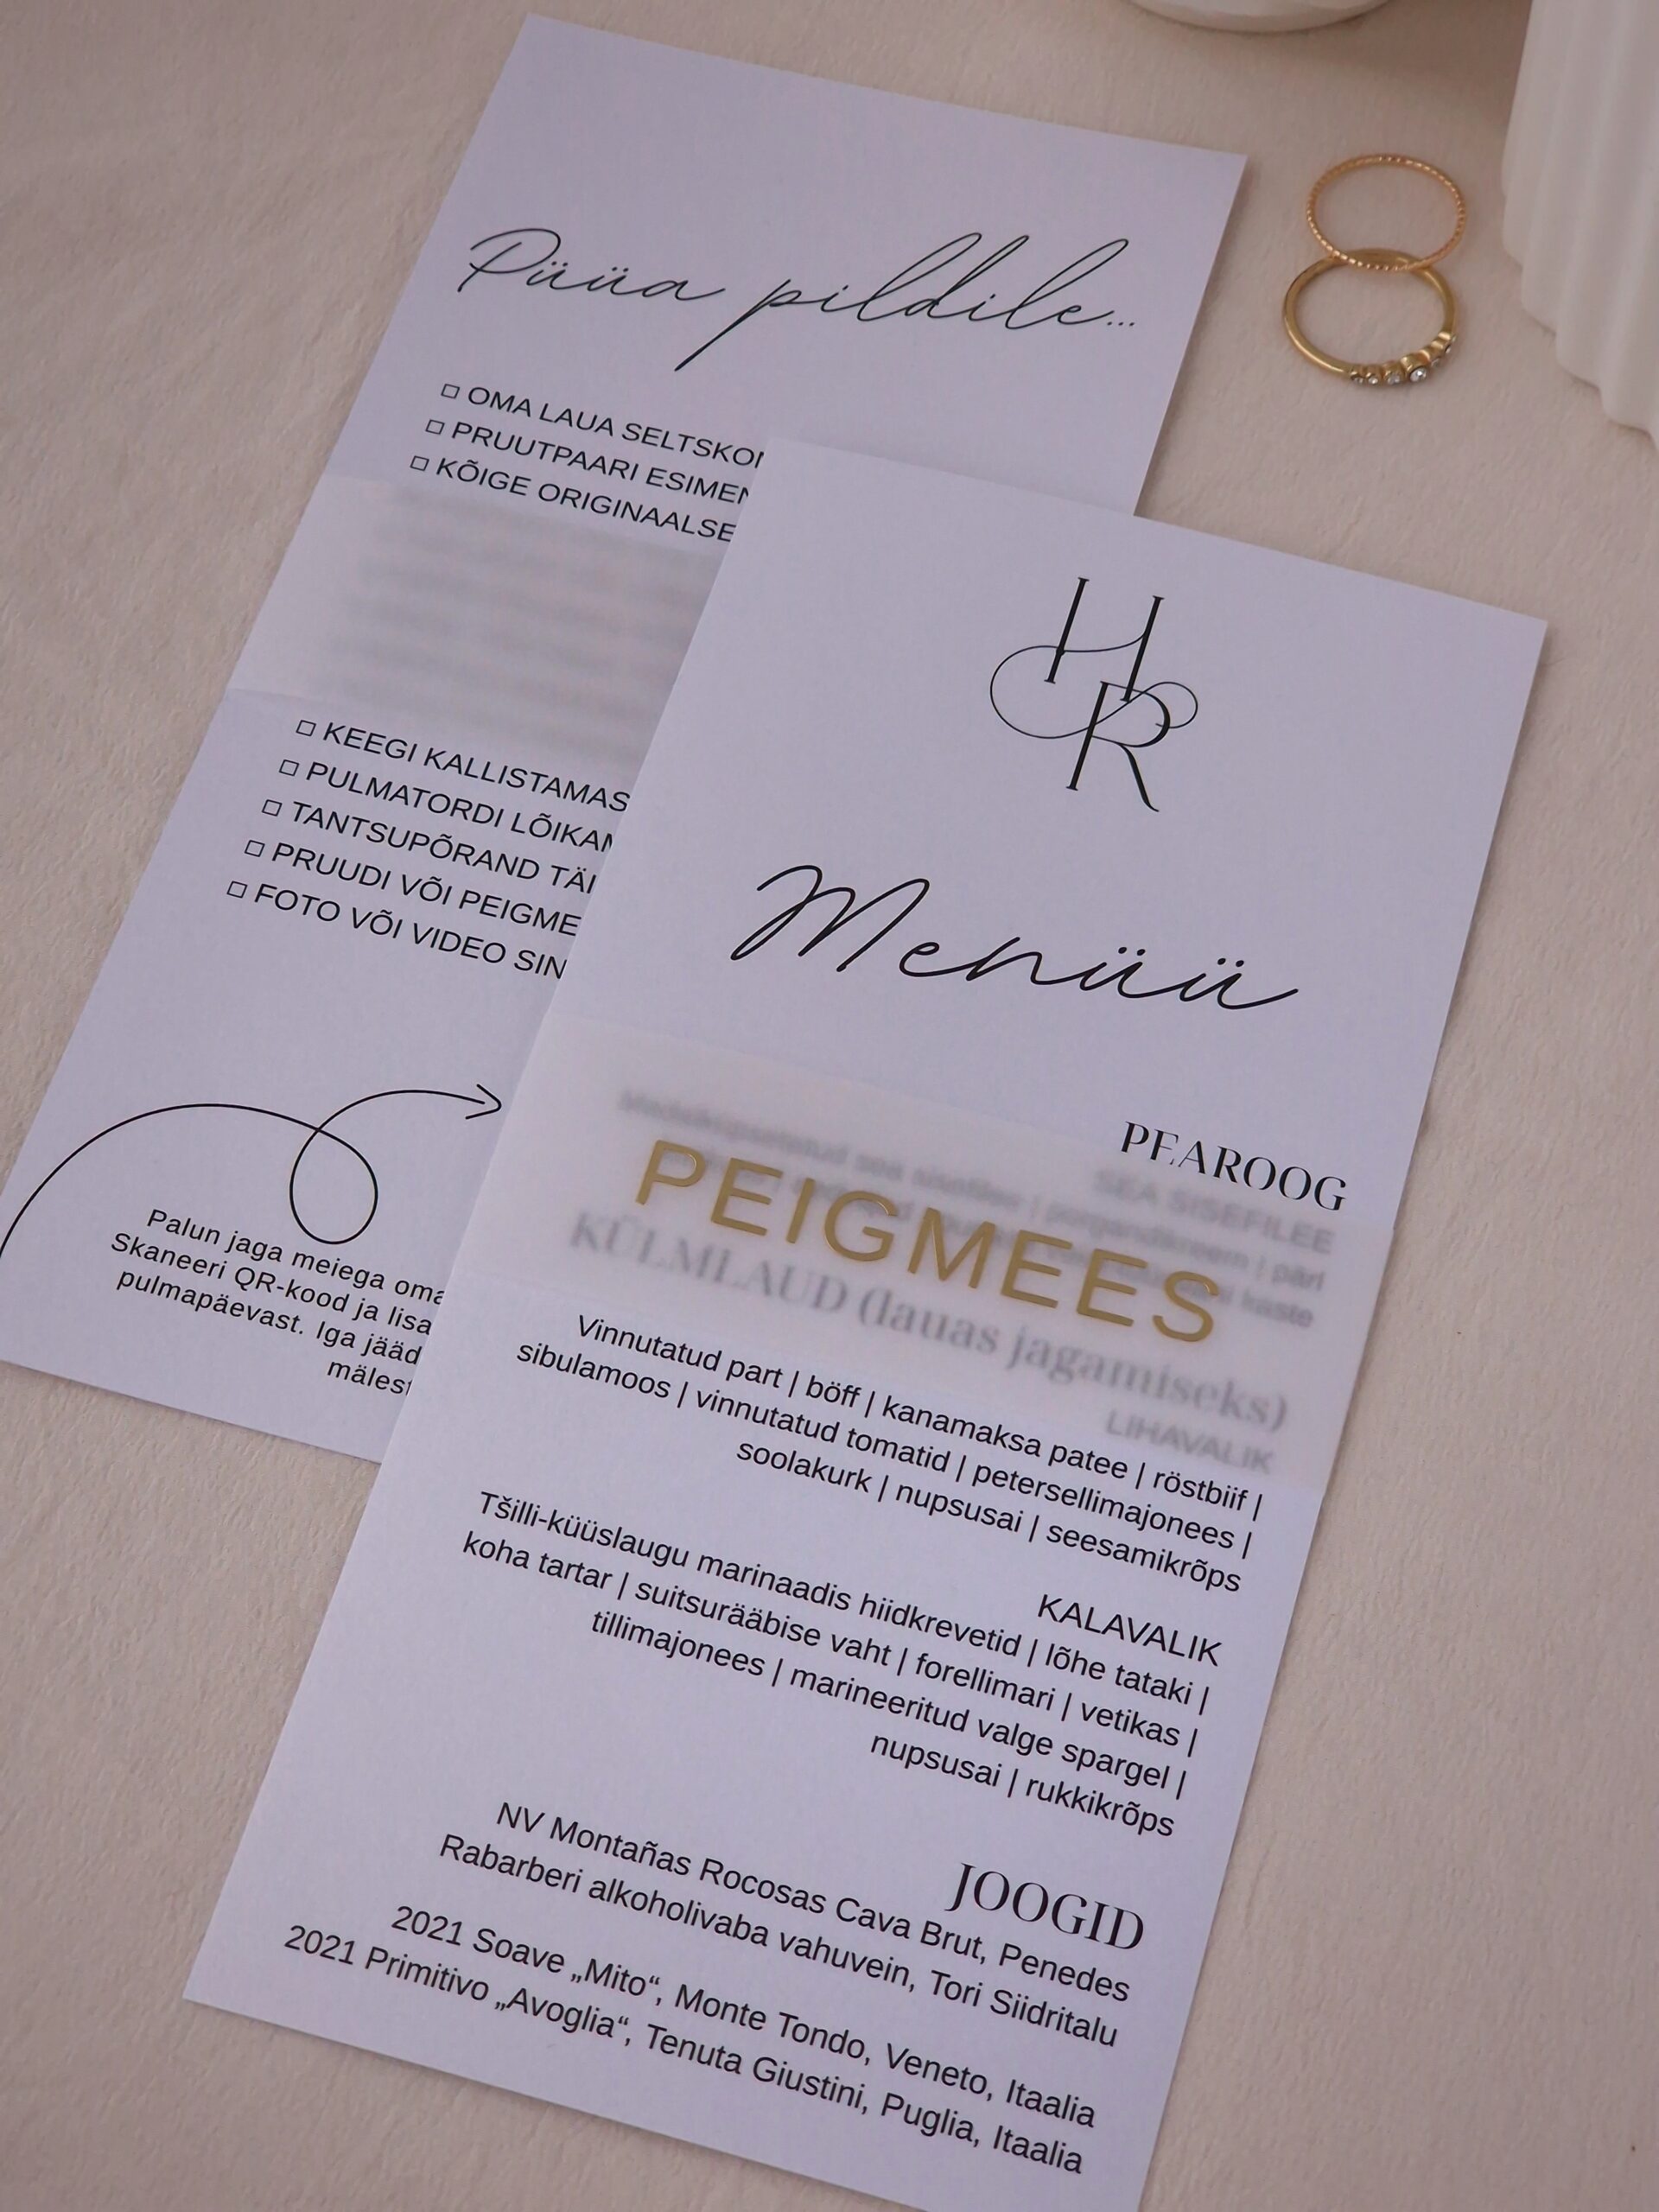 Püüa pildile...
□ OMA LAUA
□ PRUUTPAARI
□ KÕIGE
□ KEEGI
□ PULMATORDI
□ TANTSUPÕRAND
□ PRUUDI VÕI
□ FOTO VÕI VIDEO
Palun jaga meiega
Skaneeri QR-kood ja lisa
pulmapäevast. Iga
HR
Menüü
PEAROOG
SEA SISEFILEE
PEIGMEES
KÜLMLAUD (lauas jagamiseks)
LIHAVALIK
Vinnutatud part | böff | kanamaksa patee | röstbiif |
sibulamoos | vinnutatud tomatid | petersellimajonees |
soolakurk | nupsusai | seesamikrõps
KALAVALIK
Tšilli-küüslaugu marinaadis hiidkrevetid | lõhe tataki |
koha tartar | suitsurääbise vaht | forellimari | vetikas |
tillimajonees | marineeritud valge spargel |
nupsusai | rukkikrõps
JOOGID
NV Montañas Rocosas Cava Brut, Penedes
Rabarberi alkoholivaba vahuvein, Tori Siidritalu
2021 Soave „Mito“, Monte Tondo, Veneto, Itaalia
2021 Primitivo „Avoglia“, Tenuta Giustini, Puglia, Itaalia